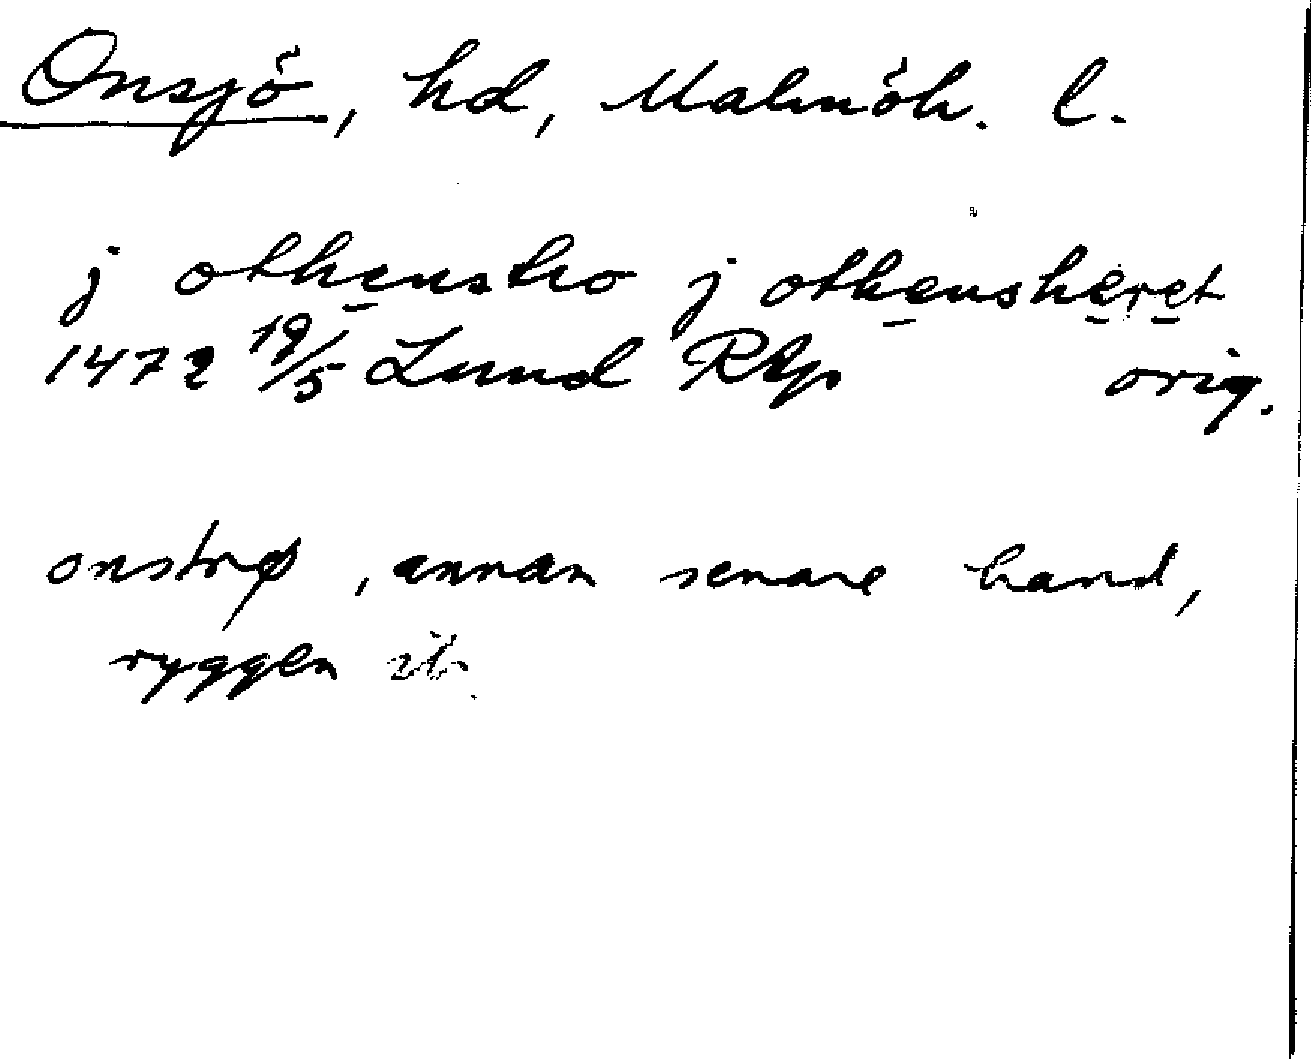 Onsjö, hd, Malmöh. l.
j othenstro j othensheret
1472 19/5 Lund RAp orig.
onstrø, annan senare hand,
ryggen ib.